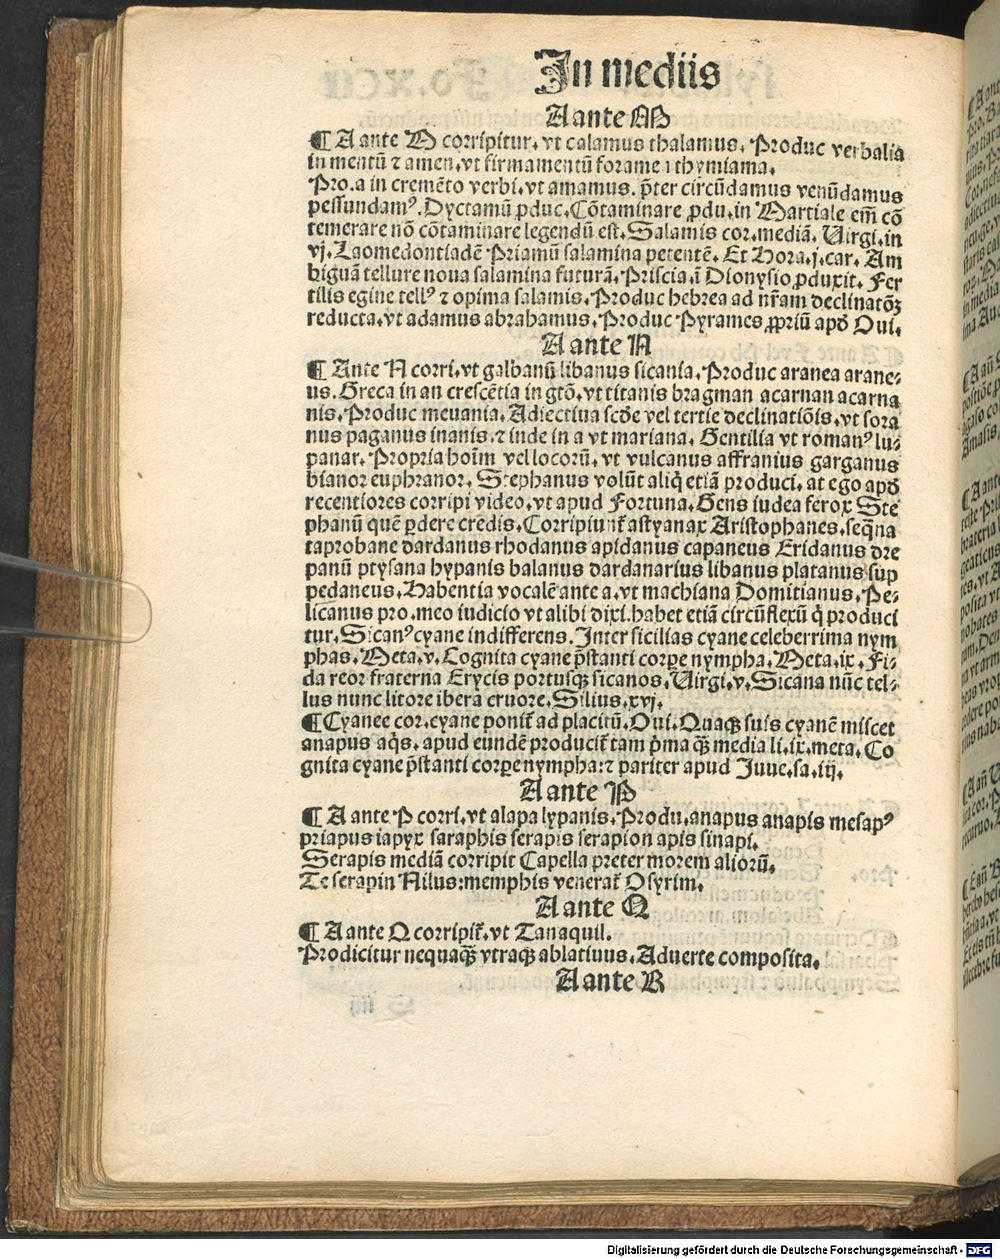 In mediis
A ante M
¶ A ante M corripitur, vt calamus thalamus, Produc verbalia
in mentũ ⁊ amen, vt firmamentũ foramen thymiama.
Pro. a in cremẽto verbi, vt amamus. p̃ter circũdamus venũdamus
pessundamꝰ. Dyctamũ ꝓduc, Cõtaminare ꝓdu. in Martiale em̃ cõ
temerare nõ cõtaminare legendũ est, Salamis cor. mediã, Uirgi, in
vj, Laomedontiadẽ Priamũ salamina petentẽ, Et Hora, j, car, Am
biguã tellure noua salamina futurã, Priscia, ĩ Dionysio ꝓduxit, Fer
tilis egine tellꝰ ⁊ opima salamis, Produc hebrea ad nr̃am declinatõꝫ
reducta, vt adamus abrahamus, Produc Pyrames ꝓpriũ apđ Oui,
A ante N
¶ Ante N corri, vt galbanũ libanus sicania, Produc aranea arane⸗
us. Greca in an crescẽtia in gtõ, vt titanis bragman acarnan acarna
nis, Produc meuania, Adiectiua scđe vel tertie declinatiõis, vt sora
nus paganus inanis, ⁊ inde in a vt mariana, Gentilia vt romanꝰ lu⸗
panar, Propria hoĩm vel locorũ, vt vulcanus affranius garganus
bianor euphranor, Stephanus volũt aliq̃ etiã produci, at ego apđ
recentiores corripi video, vt apud Fortuna, Gens iudea ferox Ste
phanũ quẽ ꝑdere credis, Corripiunt̃ astyanax Aristophanes, seq̃na
taprobane dardanus rhodanus apidanus capaneus Eridanus dre
panũ ptysana hypanis balanus dardanarius libanus platanus sup
pedaneus, Habentia vocalẽ ante a, vt machiana Domitianus, Pe⸗
licanus pro, meo iudicio vt alibi dixi, habet etiã circũflexũ q̃ produci
tur, Sicanꝰ cyane indifferens, Inter sicilias cyane celeberrima nym
phas, Meta, v, Cognita cyane p̃stanti corꝑe nympha, Meta, ix, Fi⸗
da reor fraterna Erycis portusqꝫ sicanos, Uirgi, v, Sicana nũc tel⸗
lus nunc litore ibera cruore, Silius, xvj,
¶ Cyanee cor, cyane ponit̃ ad placitũ, Oui, Quaqꝫ suis cyanẽ miscet
anapus aq̃s, apud eundẽ producit̃ tam p̃ma qꝫ̃ media li, ix, meta, Co
gnita cyane p̃stanti corꝑe nympha: ⁊ pariter apud Juue, sa, iij,
A ante P
¶ A ante P corri, vt alapa lypanis, Produ, anapus anapis mesapꝰ
priapus iapyx saraphis serapis serapion apis sinapi,
Serapis mediã corripit Capella preter morem aliorũ,
Te serapin Nilus: memphis venerat̃ Osyrim,
A ante Q
¶ A ante Q corripit̃, vt Tanaquil.
Prodicitur nequaqꝫ̃ vtraqꝫ ablatiuus, Aduerte composita,
A ante R
Digitalisierung gefördert durch die Deutsche Forschungsgemeinschaft - DFG